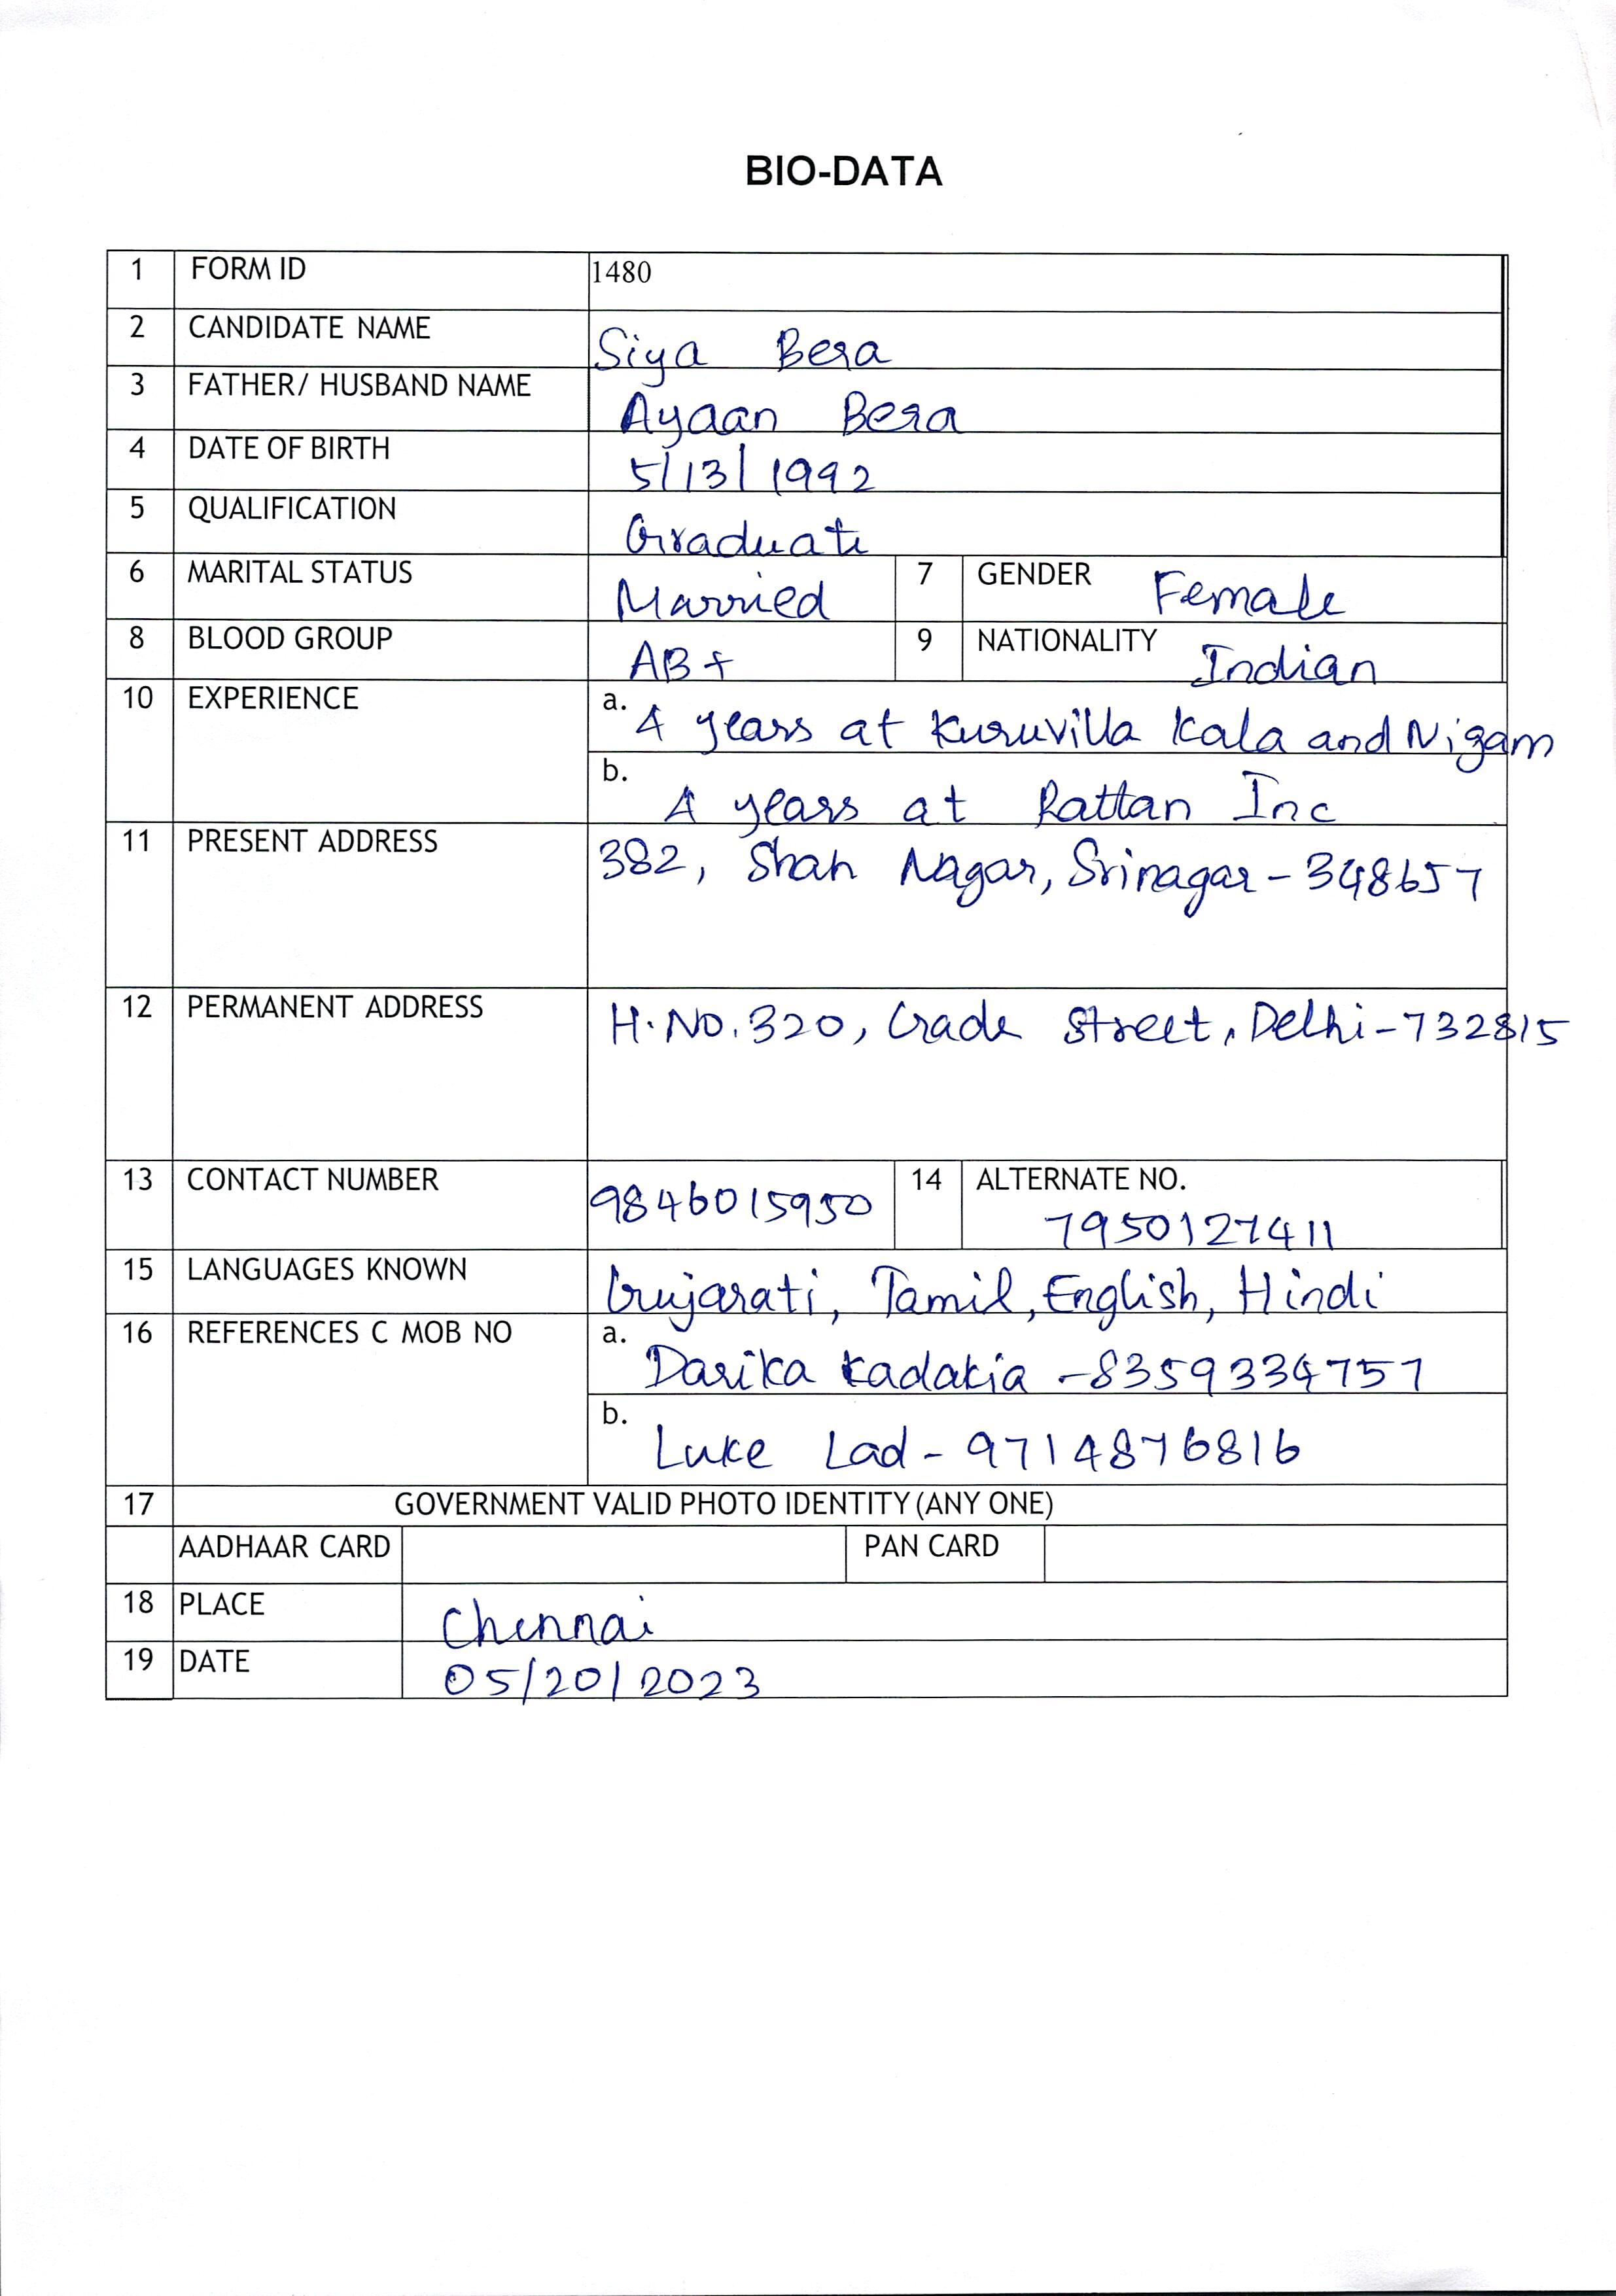 BIO-DATA
1 FORM ID 1480
2 CANDIDATE NAME Siya Bera
3 FATHER/ HUSBAND NAME Ayaan Bera
4 DATE OF BIRTH 5/13/1992
5 QUALIFICATION Graduate
6 MARITAL STATUS Married 7 GENDER Female
8 BLOOD GROUP AB+ 9 NATIONALITY Indian
10 EXPERIENCE a. 4 years at Kuruvilla Kala and Nigam
b. 4 years at Rattan Inc
11 PRESENT ADDRESS 382, Shah Nagar, Srinagar - 348657
12 PERMANENT ADDRESS H.NO.320, Grade Street, Delhi - 732815
13 CONTACT NUMBER 9846015950 14 ALTERNATE NO.
7950127411
15 LANGUAGES KNOWN Gujarati, Tamil, English, Hindi
16 REFERENCES C MOB NO a. Darika Kadakia - 8359334757
b. Luke Lad - 9714876816
17 GOVERNMENT VALID PHOTO IDENTITY (ANY ONE)
AADHAAR CARD PAN CARD
18 PLACE Chennai
19 DATE 05/20/2023